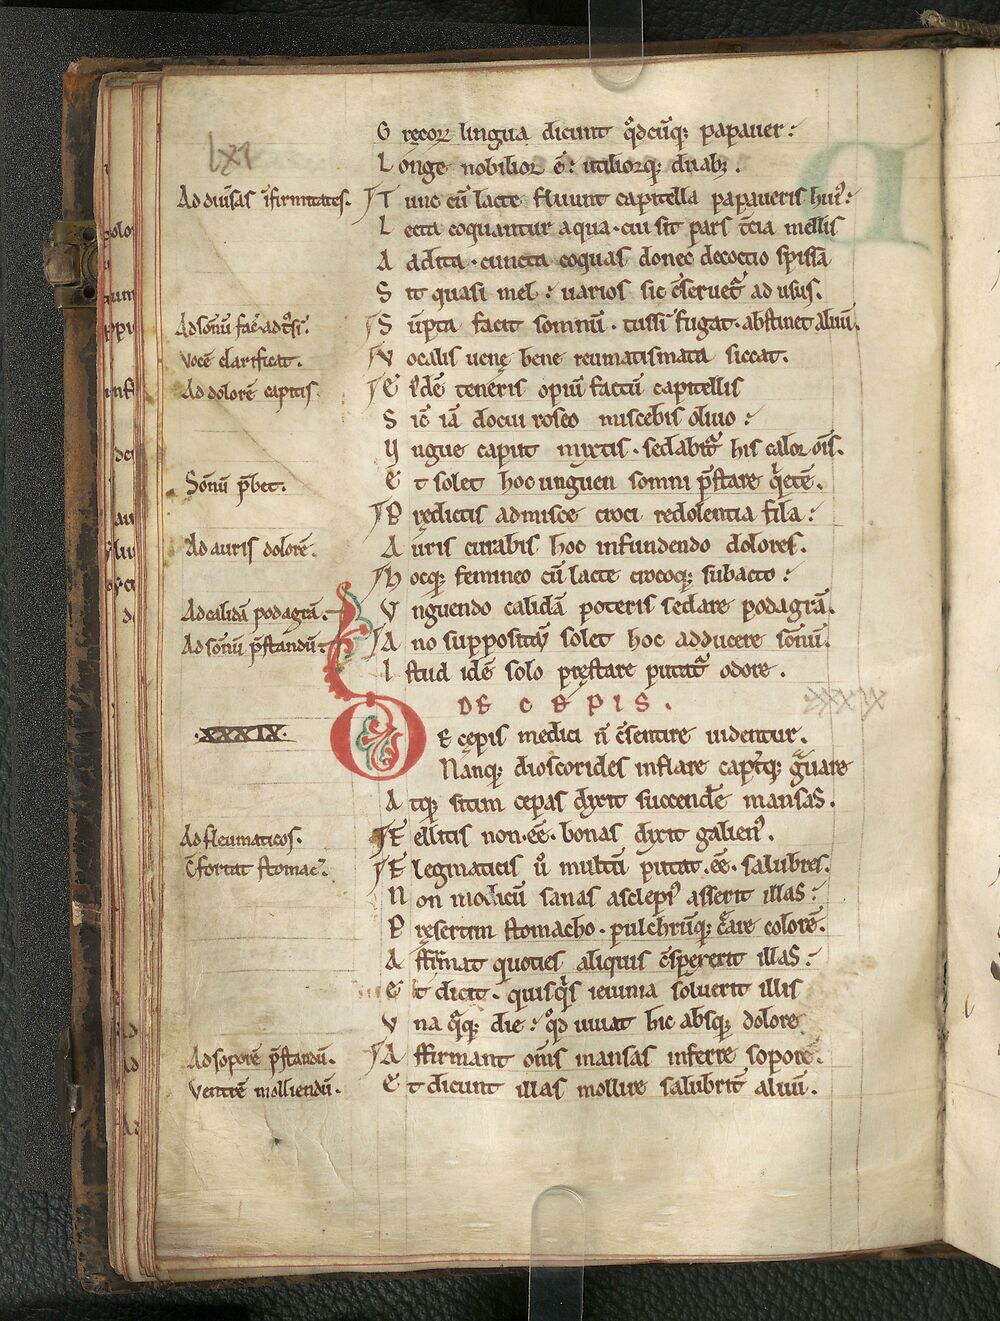 lxi
G recorꝝ lingua dicunt q̄dcūq; papauer:
L onge nobilior ē: utiliorq; duab;.
Ad diūsas īfirmitates. T unc cū lacte fluunt capitella papaueris hui᷒:
L ecta coquantur aqua· cui sit pars t̄cia mellis
A ddita· cuncta coquas donec decoctio spissa
S it quasi mel: uarios sic c̄seruet᷑ ad usus.
Ad sōnū fac̄· ad t᷒si. S ūpta facit somnū· tussī fugat· abstinet aluū.
Vocē clarificat. V ocalis uene bene reumatismata siccat.
Ad dolorē capitis. E ꝯdē teneris opiū factū capitellis
S ic̄ iā docui roseo miscebis oliuo:
V ngue caput mixtis· sedabit᷑ his calor oīs.
Sōnū p̄bet. E t solet hoc unguen somni p̄stare qͥetē.
P redictis admisce croci redolentia fila:
Ad auris dolorē. A uris curabis hoc infundendo dolores.
h ocq; femineo cū lacte crococq; subacto:
Ad calidā podagrā. V nguendo calidā poteris sedare podagrā.
Ad sōnū p̄standū. A no suppositū solet hoc adducere sōnū.
I stud idē solo prestare putat᷑ odore.
DE CEPIS.
xxxix
·XXXIX· D E cepis medici ñ c̄sentire uidentur.
Nanq; dioscorides inflare capitq; g͛uare
A tq; sitim cepas dixit succend̄e mansas.
E ellitis non· ēē· bonas dixit galien᷒.
Ad fleumaticos. F legmaticis u̓ multū putat· ēē· salubres.
C̄fortat stomac᷒. N on modicū sanas asclepi᷒ asserit illas:
P resertim stomacho· pulchrūq; c͛are colorē.
A ffirmat quoties aliquis c̄spererit illas:
E t dicit· quisqͥs ieiunia soluerit illis
V na q̄q; die: q̄d uiuat hic absq; dolore
Ad soporē p̄standū. A ffirmant om̄s mansas inferre soporē.
Ventrē molliendū. E t dicunt illas mollire salubrit̄ aluū.